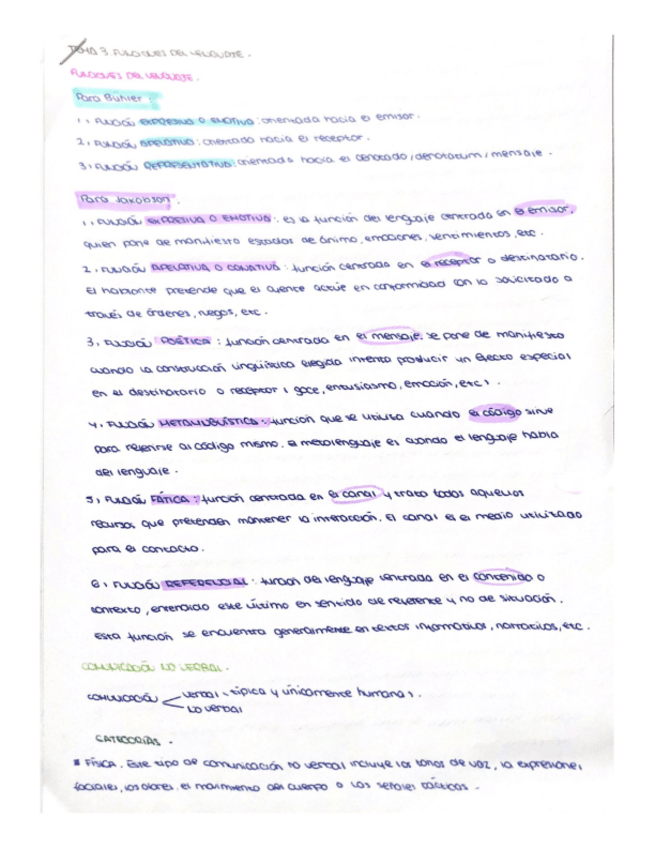 TEMA 3. FUNCIONES DEL LENGUAJE.
FUNCIONES DEL LENGUAJE.
Para Bühler:
1. FUNCIÓN EXPRESIVA O EMOTIVA: orientada hacia el emisor.
2. FUNCIÓN APELATIVA: orientada hacia el receptor.
3. FUNCIÓN REPRESENTATIVA: orientada hacia el denotado/denotatum/mensaje.
Para Jakobson:
1. FUNCIÓN EXPRESIVA O EMOTIVA: es la función del lenguaje centrada en el emisor,
quien pone de manifiesto estados de ánimo, emociones, sentimientos, etc.
2. FUNCIÓN APELATIVA O CONATIVA: función centrada en el receptor o destinatario.
El hablante pretende que el oyente actúe en conformidad con lo solicitado a
través de órdenes, ruegos, etc.
3. FUNCIÓN POÉTICA: función centrada en el mensaje. se pone de manifiesto
cuando la construcción lingüística elegida intenta producir un efecto especial
en el destinatario o receptor (goce, entusiasmo, emoción, etc).
4. FUNCIÓN METALINGÜÍSTICA: función que se utiliza cuando el código sirve
para referirse al código mismo. el metalenguaje es cuando el lenguaje habla
del lenguaje.
5. FUNCIÓN FÁTICA: función centrada en el canal y trata todos aquellos
recursos que pretenden mantener la interacción. El canal es el medio utilizado
para el contacto.
6. FUNCIÓN REFERENCIAL: función del lenguaje centrada en el contenido o
contexto, entendido este último en sentido de referente y no de situación.
esta función se encuentra generalmente en textos informativos, narrativos, etc.
COMUNICACIÓN NO VERBAL.
COMUNICACIÓN verbal - típica y únicamente humana.
No verbal
CATEGORÍAS.
FÍSICA. Este tipo de comunicación no verbal incluye los tonos de voz, la expresiones
faciales, los olores, el movimiento del cuerpo o las señales táctiles.